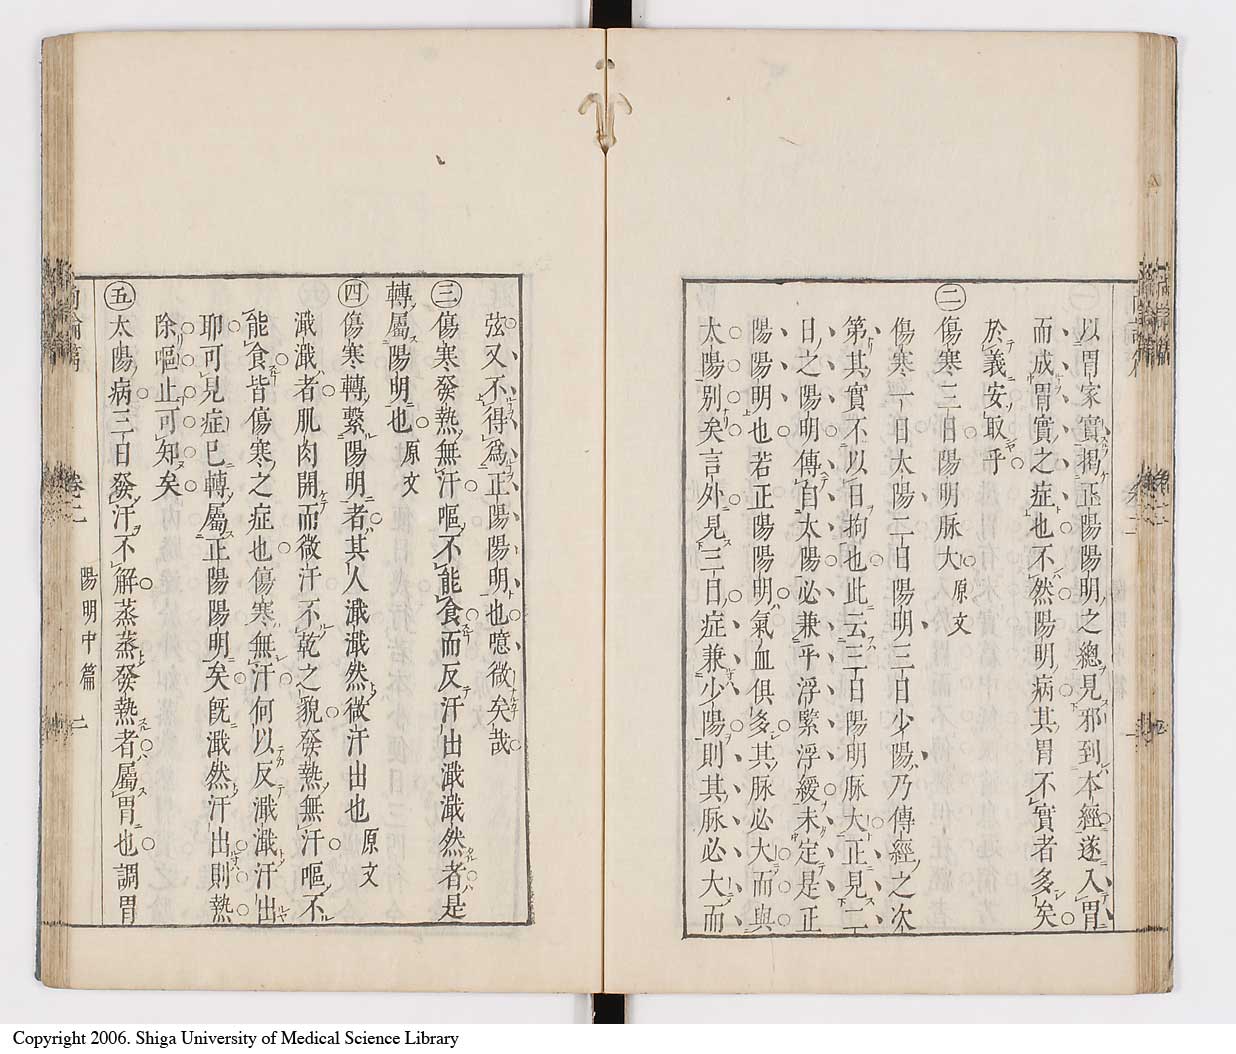 以胃家實揭正陽陽明之總見邪到本經遂入胃
而成胃實之症也不然陽明病其胃不實者多矣
於義安取乎
㊁傷寒三日陽明脉大 原文
傷寒一日太陽二日陽明三日少陽乃傳經之次
第其實不以日拘也此云三日陽明脉大正見二
日之陽明傳自太陽必兼乎浮緊浮緩未定是正
陽陽明也若正陽陽明氣血俱多其脉必大而與
太陽别矣言外見三日症兼少陽則其脉必大而
弦又不得爲正陽陽明也噫微矣哉
㊂傷寒發熱無汗嘔不能食而反汗出濈濈然者是
轉屬陽明也 原文
㊃傷寒轉繫陽明者其人濈濈然微汗出也 原文
濈濈者肌肉開而微汗不乾之貌發熱無汗嘔不
能食皆傷寒之症也傷寒無汗何以反濈濈汗出
耶可見症已轉屬正陽陽明矣旣濈然汗出則熱
除嘔止可知矣
㊄太陽病三日發汗不解蒸蒸發熱者屬胃也調胃
卷二 陽明中篇 二
Copyright 2006. Shiga University of Medical Science Library